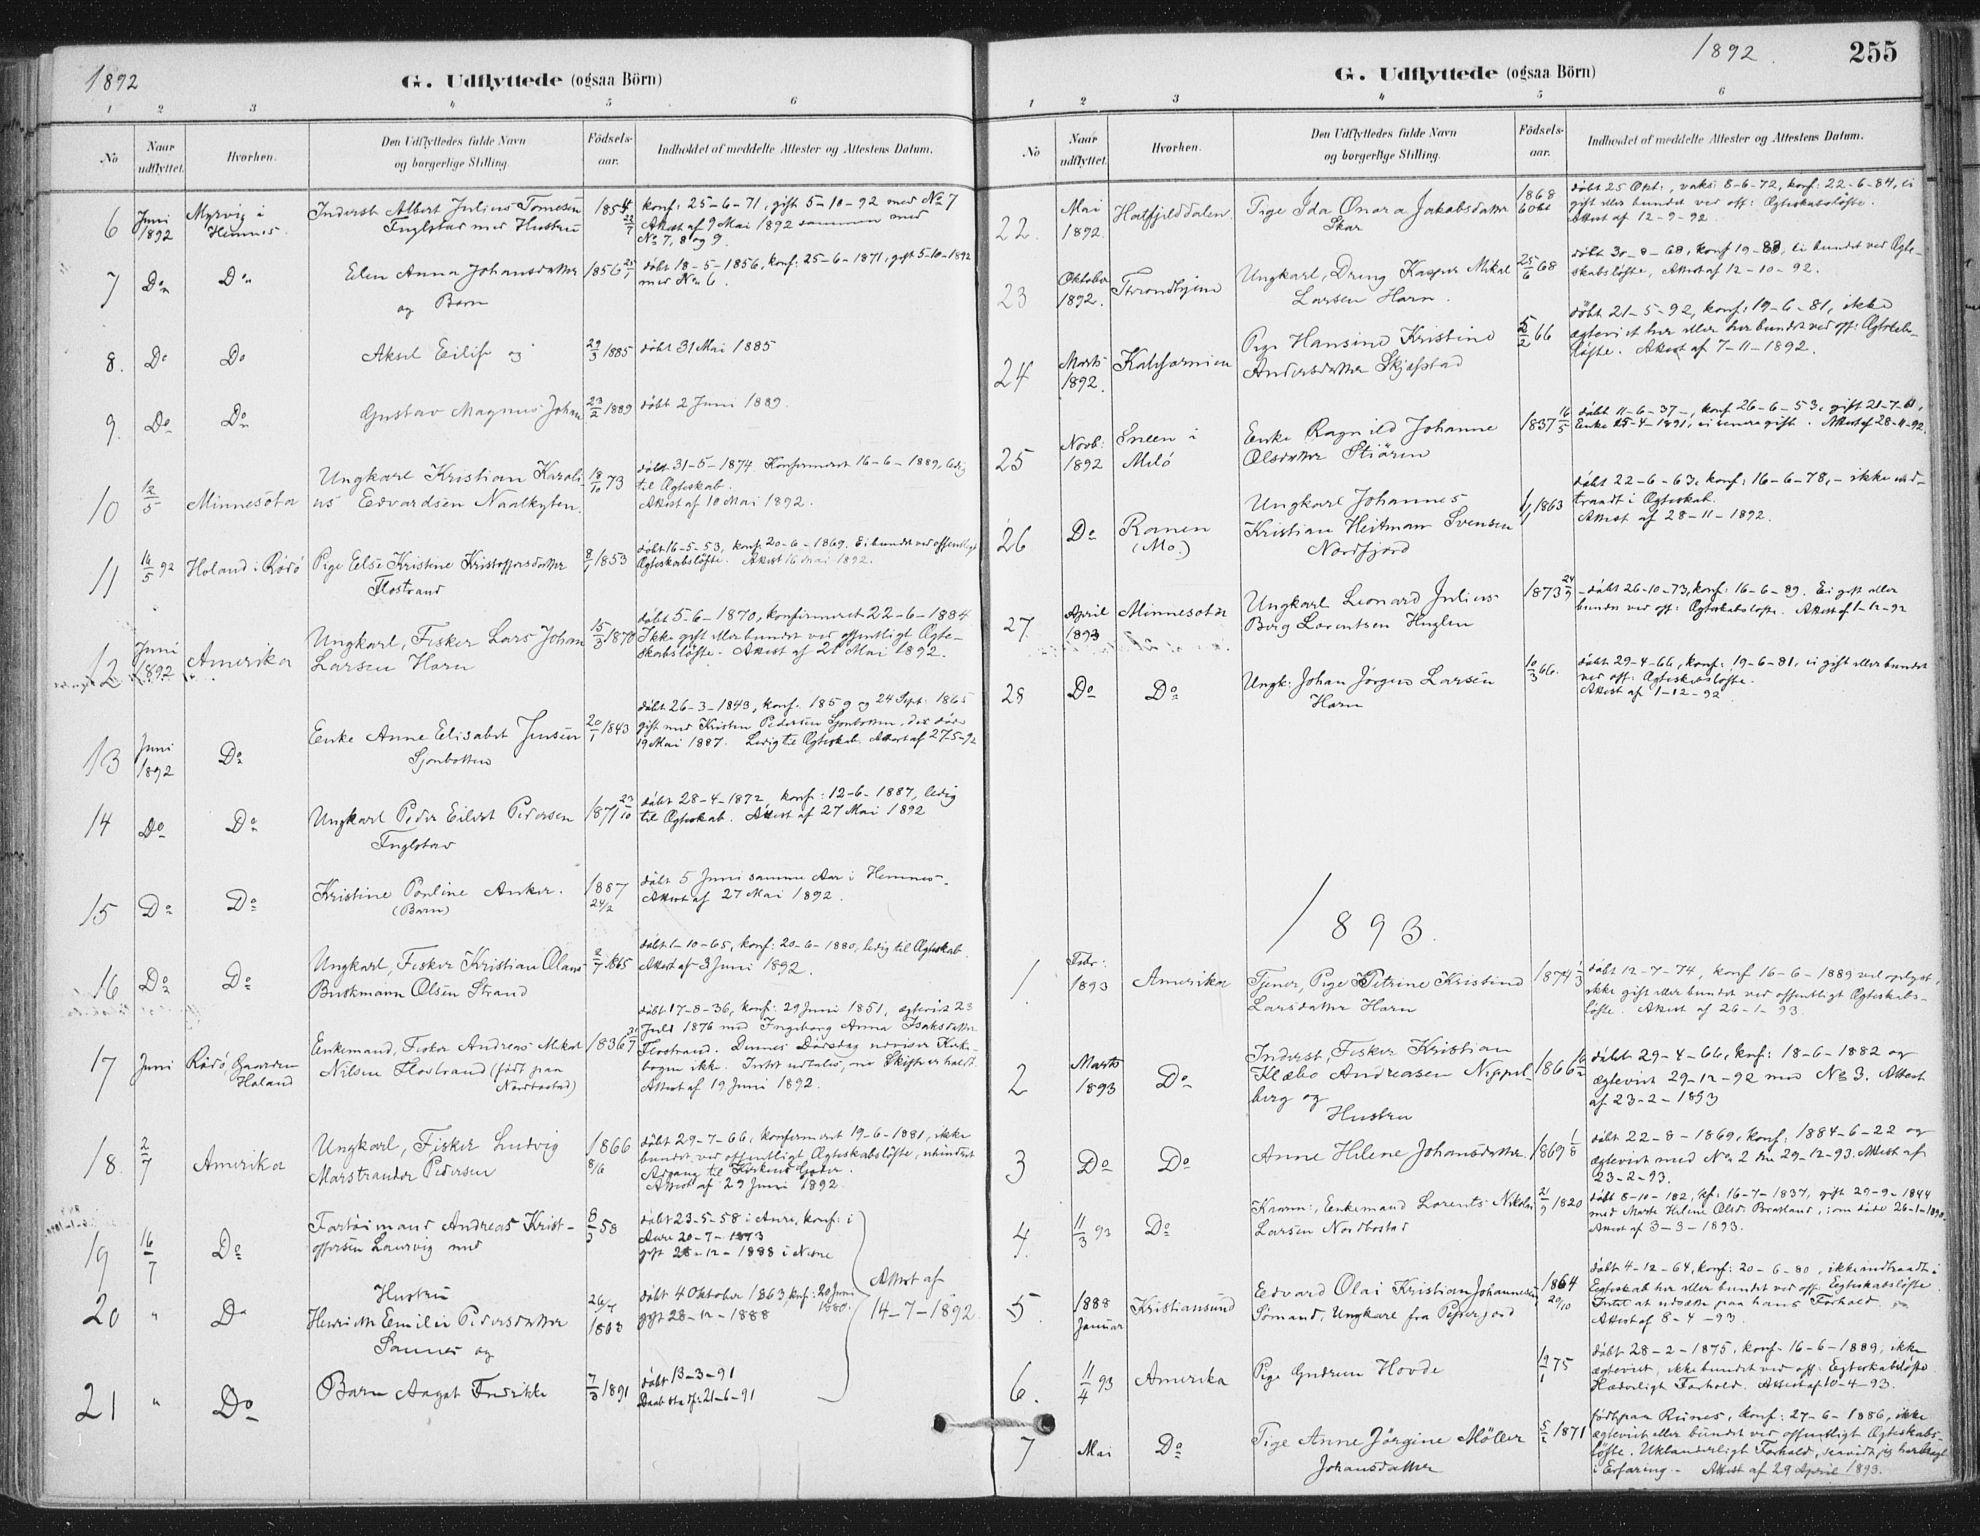 1892
G. Udflyttede (ogsaa Börn)
1 2 3 4 5 6
No
Naar udflyttet.
Hvorhen.
Den Udflyttedes fulde Navn og borgerlige Stilling.
Födsels-aar.
Indholdet af meddelte Attester og Attestens Datum.
6 Juni 1892 Myrvig i Hemnes.
Inderst Albert Julius Tomesen
Inglstad med Hustru
1854 22/7
konf. 25-6-71, gift 5-10-92 med No 7
Attest af 9 Mai 1892 sammen med
No 7, 8 og 9.
7 Do Do
Elen Anna Johansdatter
og Børn
1856 25/1
døbt 18-5-1856, konf: 25-6-1871, gift 5-10-1892
med No 6.
8. Do Do
Aksel Eilif og
29/3 1885
døbt 31 Mai 1885
9. Do Do
Gustav Magnus Johan
23/2 1889
døbt 2 Juni 1889.
10 12/5 Minnesota
Ungkarl Kristian Karoli
us Edvardsen Naalkyten.
18/10 73
døbt 31-5-1874 Konfirmeret 16-6-1889, ledig
til Ægteskab.
Attest af 10 Mai 1892.
11 14/5 92 Holand i Rödö
Pige Else Kristine Kristoffersdatter
Flostrand
8/1 1853
døbt 16-5-53, konf: 20-6-1869. Ei bundet ved offentligt
Ægteskabsløfte. Attest 16 Mai 1892.
12 Juni 1892 Amerika
Ungkarl, Fisker Lars Johan
Larsen Harn
15/3 1870
døbt 5-6-1870, konfirmeret 22-6-1884
Ikke gift eller bundet ved offentligt Ægte-
skabsløfte. Attest af 21 Mai 1892.
13 Juni 1892 Do
Enke Anne Elisabet Jensen
Sjonbotten
20/1 1843
døbt 26-3-1843, konf. 1859 og 24 Sept. 1865
gift med Kristen Pedersen Sjonbotten, der døde
19 Mai 1887. Ledig til Ægteskab. Attest af 27-5-92
14 Do Do
Ungkarl Peder Eilert Pedersen
Inglstad
1871 23/10
døbt 28-4-1872, konf: 12-6-1887, ledig
til Ægteskab. Attest af 27 Mai 1892
15 Do Do
Kristine Pauline Anker.
(Barn)
1887 24/2
døbt 5 Juni samme Aar i Hemnes.
Attest af 27 Mai 1892.
16 Do Do
Ungkarl, Fisker Kristian Olaus
Buskmann Olsen Strand
2/7 1865
døbt 1-10-65, konf: 20-6-1880, ledig til Ægteskab.
Attest af 3 Juni 1892.
17 Juni Rödö, Gaarden Holand
Enkemand, Fisker Andreas Mikal
Nilsen Flostrand (født paa
Nordbostad)
1836
døbt 17-8-36, konf: 29 Juni 1851, egteviet 23
Juli 1876 med Ingeborg Anna Isaksdatter
Flostrand. Dennes Dødsdag udviser Kirke-
bogen ikke. Intet udtales, om Skifte er holdt.
Attest af 19 Juni 1892.
18. 2/7 Amerika
Ungkarl, Fisker Ludvig
Marstrander Pedersen
1866 8/6
døbt 29-7-66, konfirmeret 19-6-1881, ikke
bundet ved offentligt Ægteskabsløfte, uhindret
Adgang til Kirkens Goder.
Attest af 29 Juni 1892.
19 16/7 Do
Fartøimand Andreas Krist-
offersen Laurvig med
58
døbt 23-5-58 i Aure, konf: i
Aure 20-7-1873
gift 28-12-1888 i Nesne
20 " Do
Hustru
Henritte Emilie Pedersdatter
Sannes og
1863
døbt 4 Oktober 1863, konf: 20 Juni
1880.
gift 28-12-1888
Attest af
14-7-1892.
21 " Do
Barn Aagot Fredrikke
7/3 1891
døbt 13-3-91
1892. 255
G. Udflyttede (ogsaa Börn)
1 2 3 4 5 6
No
Naar udflyttet.
Hvorhen.
Den Udflyttedes fulde Navn og borgerlige Stilling.
Födsels-aar.
Indholdet af meddelte Attester og Attestens Datum.
22. Mai 1892. Hatfjelddalen
Pige Ida Onora Jakobsdatter
Skar
1868
døbt 25 Okt:, vaks: 8-6-72, konf: 22-6-84, ei
gift eller bundet ved off: Ægteskabsløfte.
Attest af 12-9-92.
23 Oktober 1892. Throndhjem
Ungkarl, Dreng Kasper Mikal
Larsen Harn.
25/6 68
døbt 30-8-68, konf 19-83, ei bundet ved Ægte-
skabsløfte, Attest af 12-10-92.
24 Marts 1892. Kalifornien
Pige Hansine Kristine
Andersdatter Skjefstad
5/2 66
døbt 21-5-92, konf: 19-6-81, ikke
egteviet her eller her bundet ved off: Ægtskab-
løfte. Attest af 7-11-1892.
25 Novb: 1892 Sneen i Melö
Enke Ragnild Johanne
Olsdatter Stiören
1837 16/5
døbt 11-6-37-, konf 26-6-53, gift 21-7-61,
Enke 25-4-1891, ei senere gift. Attest af 28-11-92.
26 Do Ranen (Mo.)
Ungkarl Johannes
Kristian Heitman Svensen
Nordfjord
1/1 1863
døbt 22-6-63, konf: 16-6-78, - ikke ind-
traadt i Ægteskab.
Attest af 28-11-1892.
27. April 1893 Minnesota
Ungkarl Leonard Julius
Berg Lorentsen Huglen
1873 24/9
døbt 26-10-73, konf: 16-6-89. Ei gift eller
bundet ved off: Ægteskabsløfte. Attest af 1-12-92
28 Do Do
Ungk: Johan Jörgen Larsen
Harn
10/3 66.
døbt 29-4-66, konf: 19-6-81, ei gift eller bundet
ved off: Ægteskabsløfte.
Attest af 1-12-92
1893.
1. Febr: 1893 Amerika
Tjener, Pige Petrine Kristine
Larsdatter Harn
1874 1/3
døbt 12-7-74, konf 16-6-1889 vel oplyst,
ikke gift eller bundet ved offentligt Ægteskabs-
løfte. Attest af 26-1-93.
2 Marts 1893 Do
Inderst, Fisker Kristian
Klæbo Andreasen Nippel-
berg og
Hustru
1866
døbt 29-4-66, konf: 18-6-1882 og
ægteviet 29-12-92 med No 3. Attest
af 23-2-1893
3 Do Do
Anne Helene Johansdatter
1869 1/8
døbt 22-8-1869, konf: 1884-6-22 og
ægteviet med No 2 den 29-12-93. Attest af
23-2-93.
4. 11/3 93 Do
Enkemand Lorents Nikolai
Larsen Nordbostad
21/9 1820
døbt 8-10-182, kf: 16-7-1837, gift 29-9-1844
med Marte Helene Olsd. Bratland, som døde 26-1-1890.
Attest af 3-3-1893.
5. 1888 Januar Kristiansund
Edvard Olai Kristian Johannesen
Sømand, Ungkarl fra
1864 29/10
døbt 4-12-64, konf: 20-6-80, ikke indtraadt i
Egteskab her eller bundet ved off. Egteskabsløfte
Intet at udsætte paa hans Forhold.
Attest af 8-4-93.
6. 11/4 93 Amerika
Pige Gudrun Hovde
19/1 75
døbt 28-2-1875, konf. 16-6-1889, ikke
egteviet, ikke bundet ved off. Egteskabsløfte
Hæderligt Forhold. Attest af 10-4-93.
7 Mai Do
Pige Anne Jörgine Möller
Johansdatter
5/2 1871
født paa Runes, konf: 27-6-1886, ikke
egteviet eller bundet ved offentligt Ægteskabs-
løfte. Uklanderligt Forhold, saavidt jeg har bragt
i Erfaring - Attest af 29 April 1893.